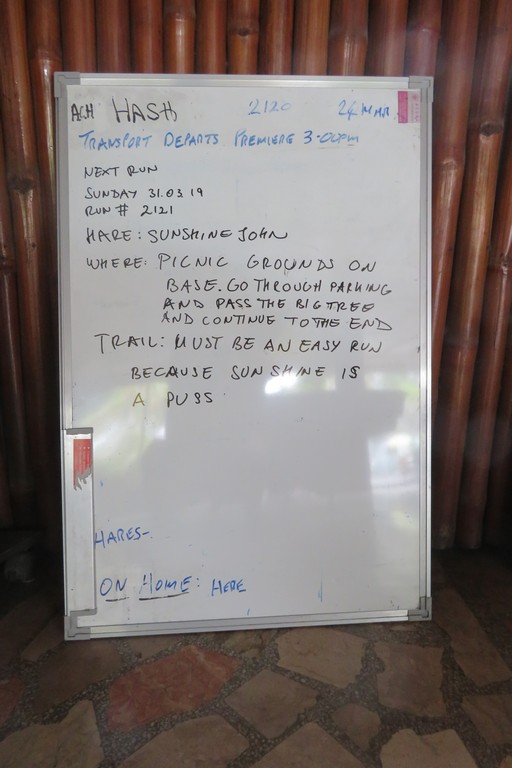 ACH HASH 2120 24 MAR
TRANSPORT DEPARTS PREMIERE 3-00pm
NEXT RUN
SUNDAY 31.03.19
RUN # 2121
HARE: SUNSHINE JOHN
WHERE: PICNIC GROUNDS ON
BASE. GO THROUGH PARKING
AND PASS THE BIG TREE
AND CONTINUE TO THE END
TRAIL: MUST BE AN EASY RUN
BECAUSE SUNSHINE IS
A PUSS
HARES-
ON HOME: HERE